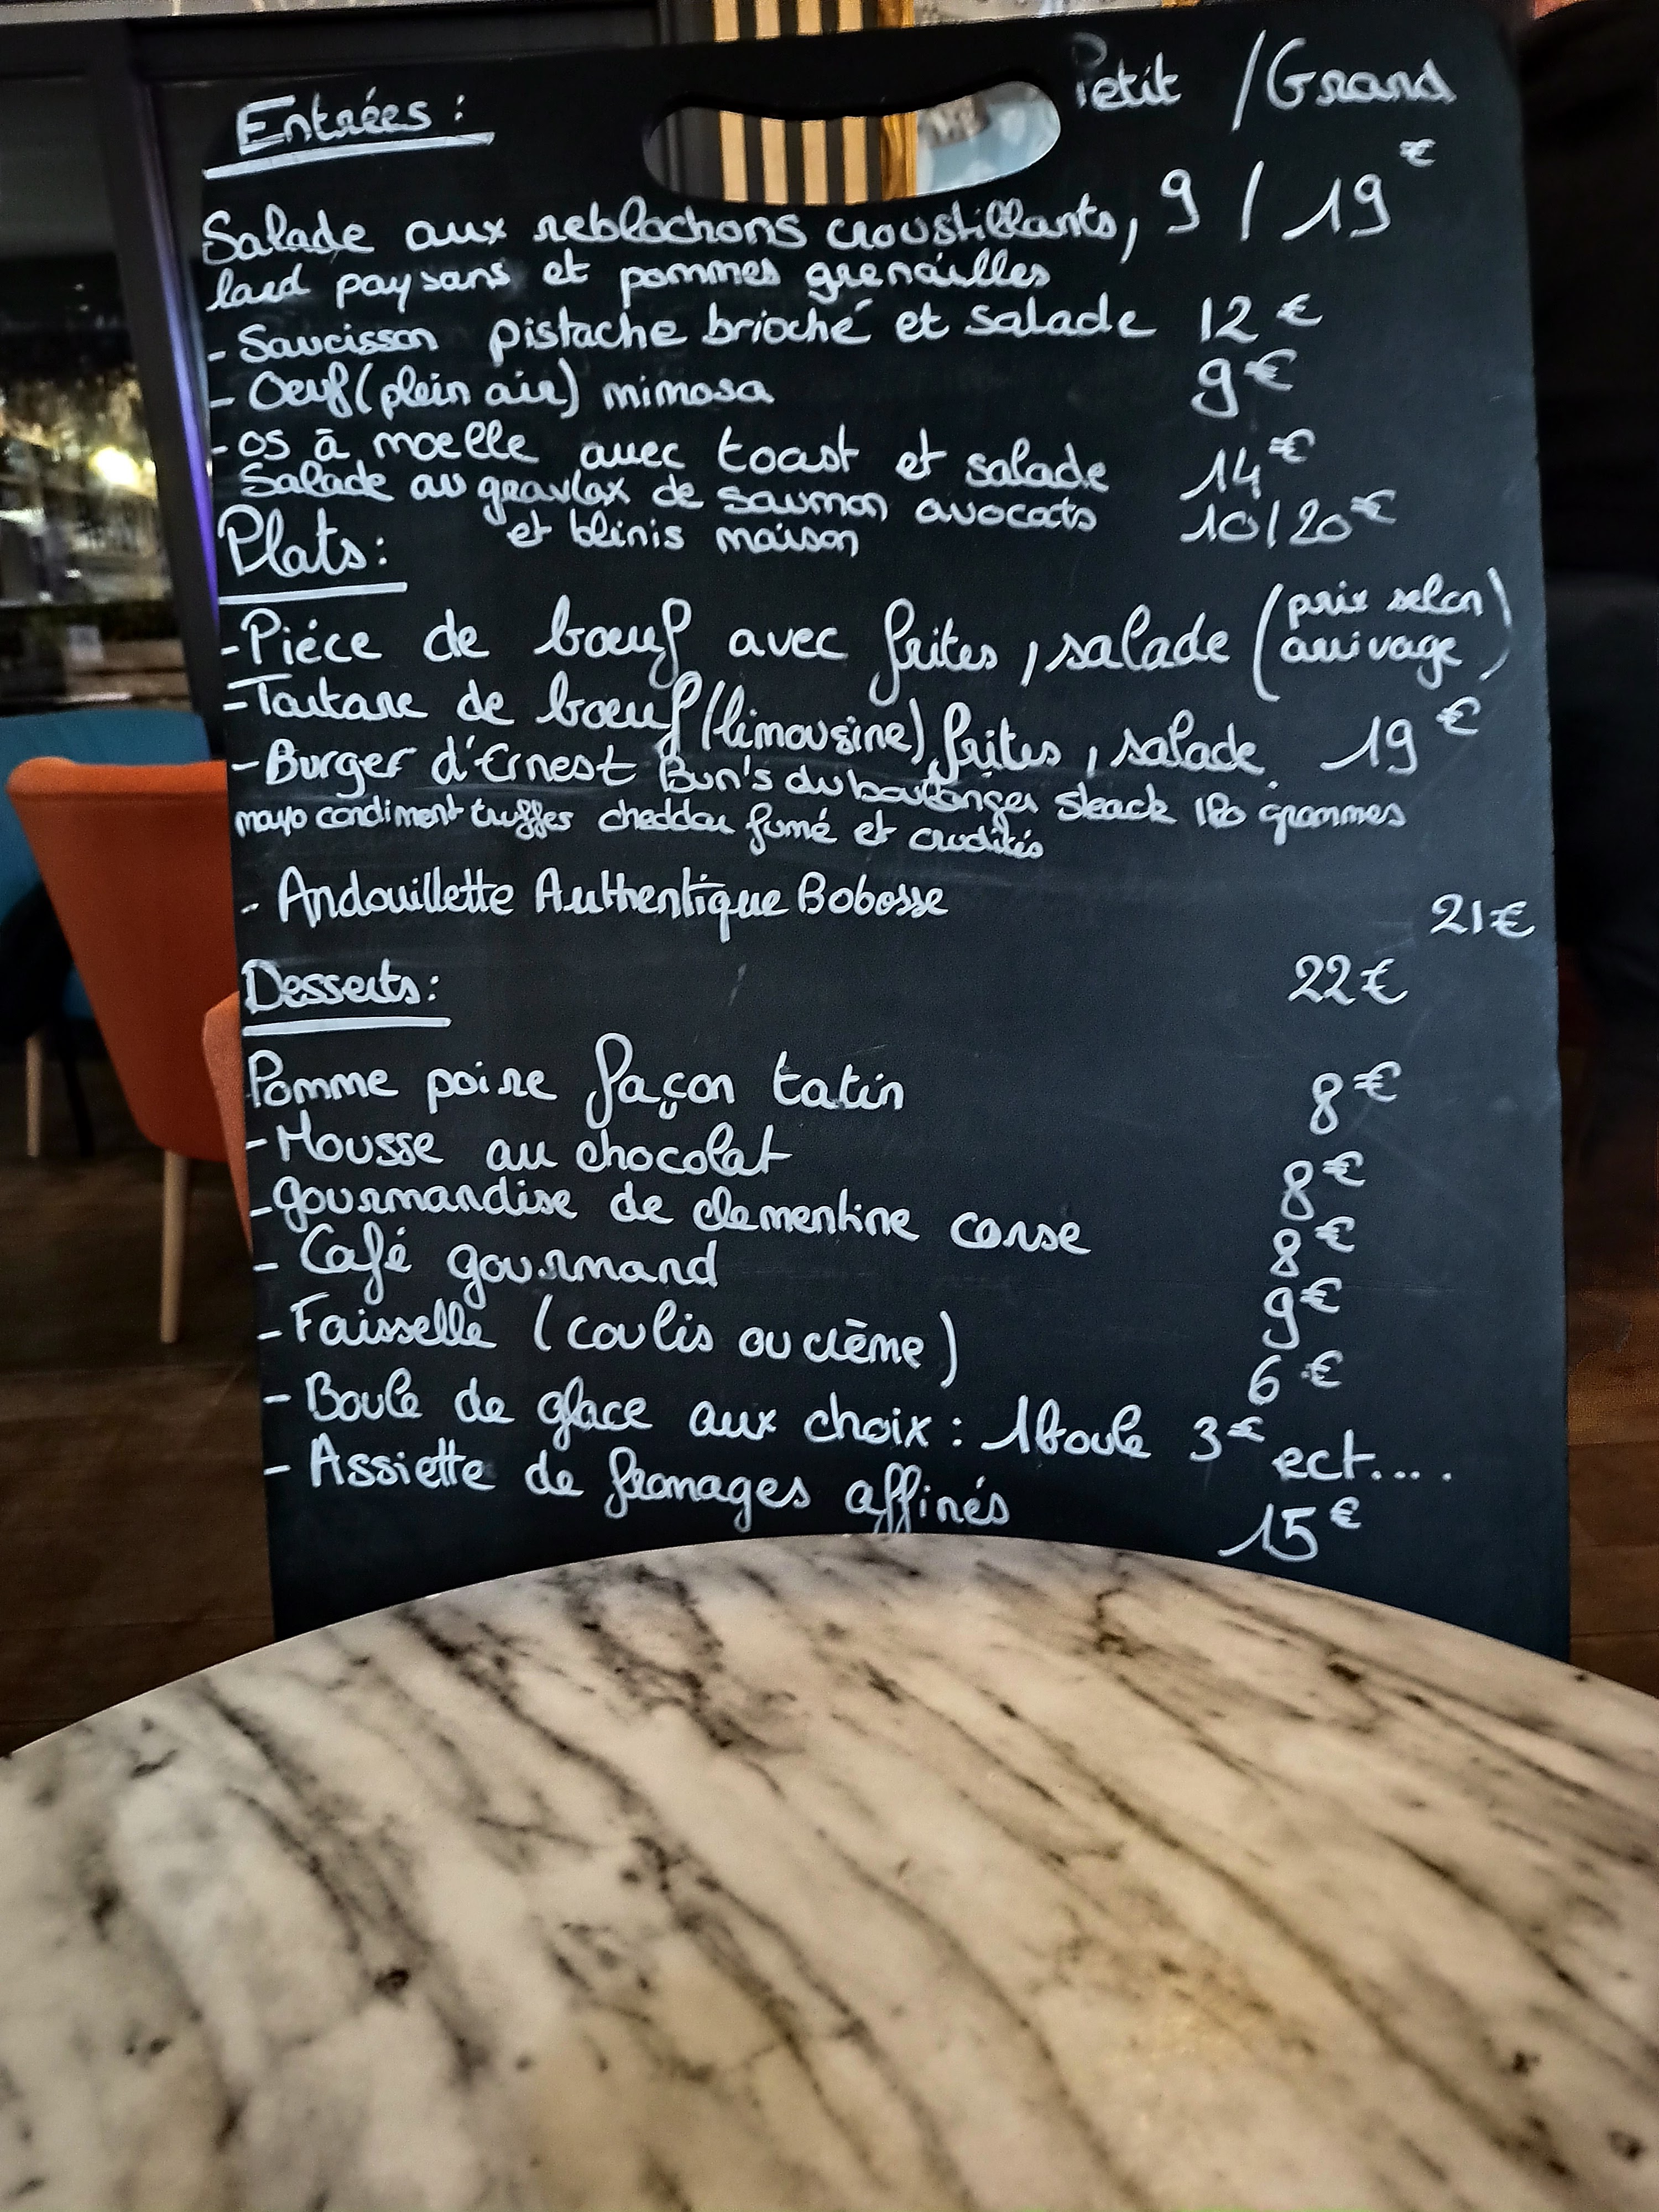 Entrées : Petit / Grand
Salade aux reblochons croustillants, 9 / 19€
lard paysans et pommes grenailles
- Saucisson pistache brioché et salade 12€
- Oeuf (plein air) mimosa 9€
- os à moelle avec toast et salade 14€
Salade au gravlax de saumon avocats 10/20€
et blinis maison
Plats :
- Piéce de boeuf avec frites, salade (prix selon arrivage)
- Tartare de boeuf (limousine) frites, salade 19€
- Burger d'Ernest Bun's du boulanger steack 180 grammes
mayo condiment truffes cheddar fumé et crudités
- Andouillette Authentique Bobosse 21€
Desserts : 22€
Pomme poire façon tatin 8€
- Mousse au chocolat 8€
- gourmandise de clementine corse 8€
- Café gourmand 9€
- Faisselle (coulis ou crème) 6€
- Boule de glace aux choix : 1 boule 3€ ect....
- Assiette de fromages affinés 15€